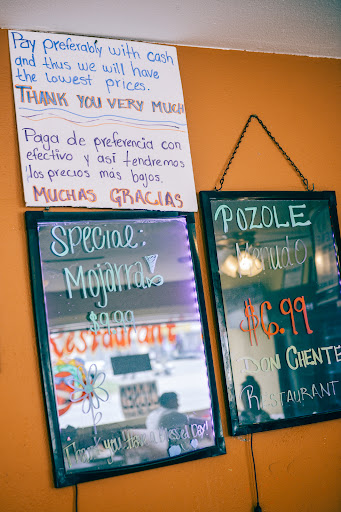 Pay preferably with cash
and thus we will have
the lowest prices.
THANK YOU VERY MUCH
Paga de preferencia con
efectivo y así tendremos
los precios más bajos.
MUCHAS GRACIAS
Special:
Mojarra
$9.99
Restaurant
Thank you Have a Blessed Day!
POZOLE
Menudo
$6.99
DON CHENTE
RESTAURANT